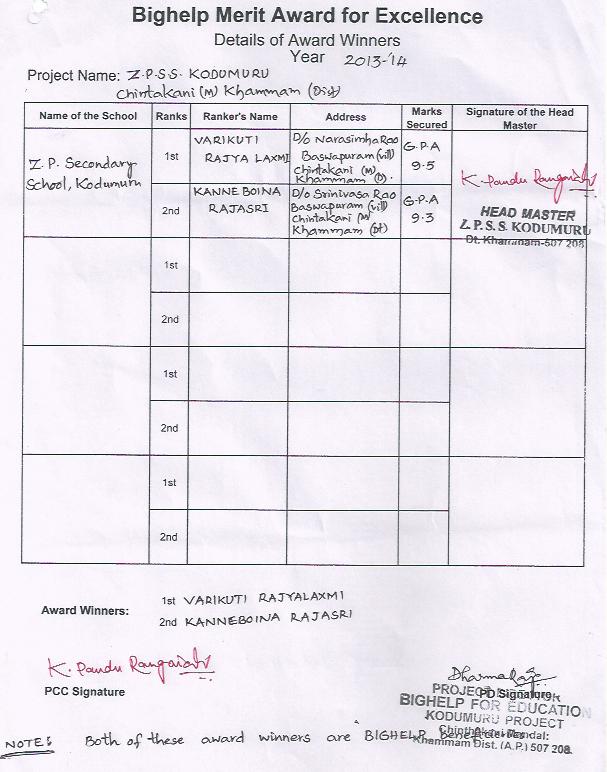 Bighelp Merit Award for Excellence
Details of Award Winners
Year 2013-14
Project Name: Z.P.S.S. KODUMURU
Chintakani (M) Khammam (Dist)
Name of the School Ranks Ranker's Name Address Marks Secured Signature of the Head Master
Z.P. Secondary School, Kodumuru
1st
VARIKUTI
RAJYA LAXMI
D/o Narasimha Rao
Baswapuram (vill)
Chintakani (M)
Khammam (D).
G.P.A
9.5
K. Pandu Rangaiah
HEAD MASTER
Z.P.S.S. KODUMURU
Dt. Khammam-507 208
2nd
KANNEBOINA
RAJASRI
D/o Srinivasa Rao
Baswapuram (vill)
Chintakani (M)
Khammam (Dt)
G.P.A
9.3
1st
2nd
1st
2nd
1st
2nd
Award Winners:
1st VARIKUTI RAJYALAXMI
2nd KANNEBOINA RAJASRI
K. Pandu Rangaiah
PCC Signature
PD Signature
BIGHELP FOR EDUCATION
KODUMURU PROJECT
Chinthakani Mandal:
Khammam Dist. (A.P.) 507 208.
NOTE: Both of these award winners are BIGHELP